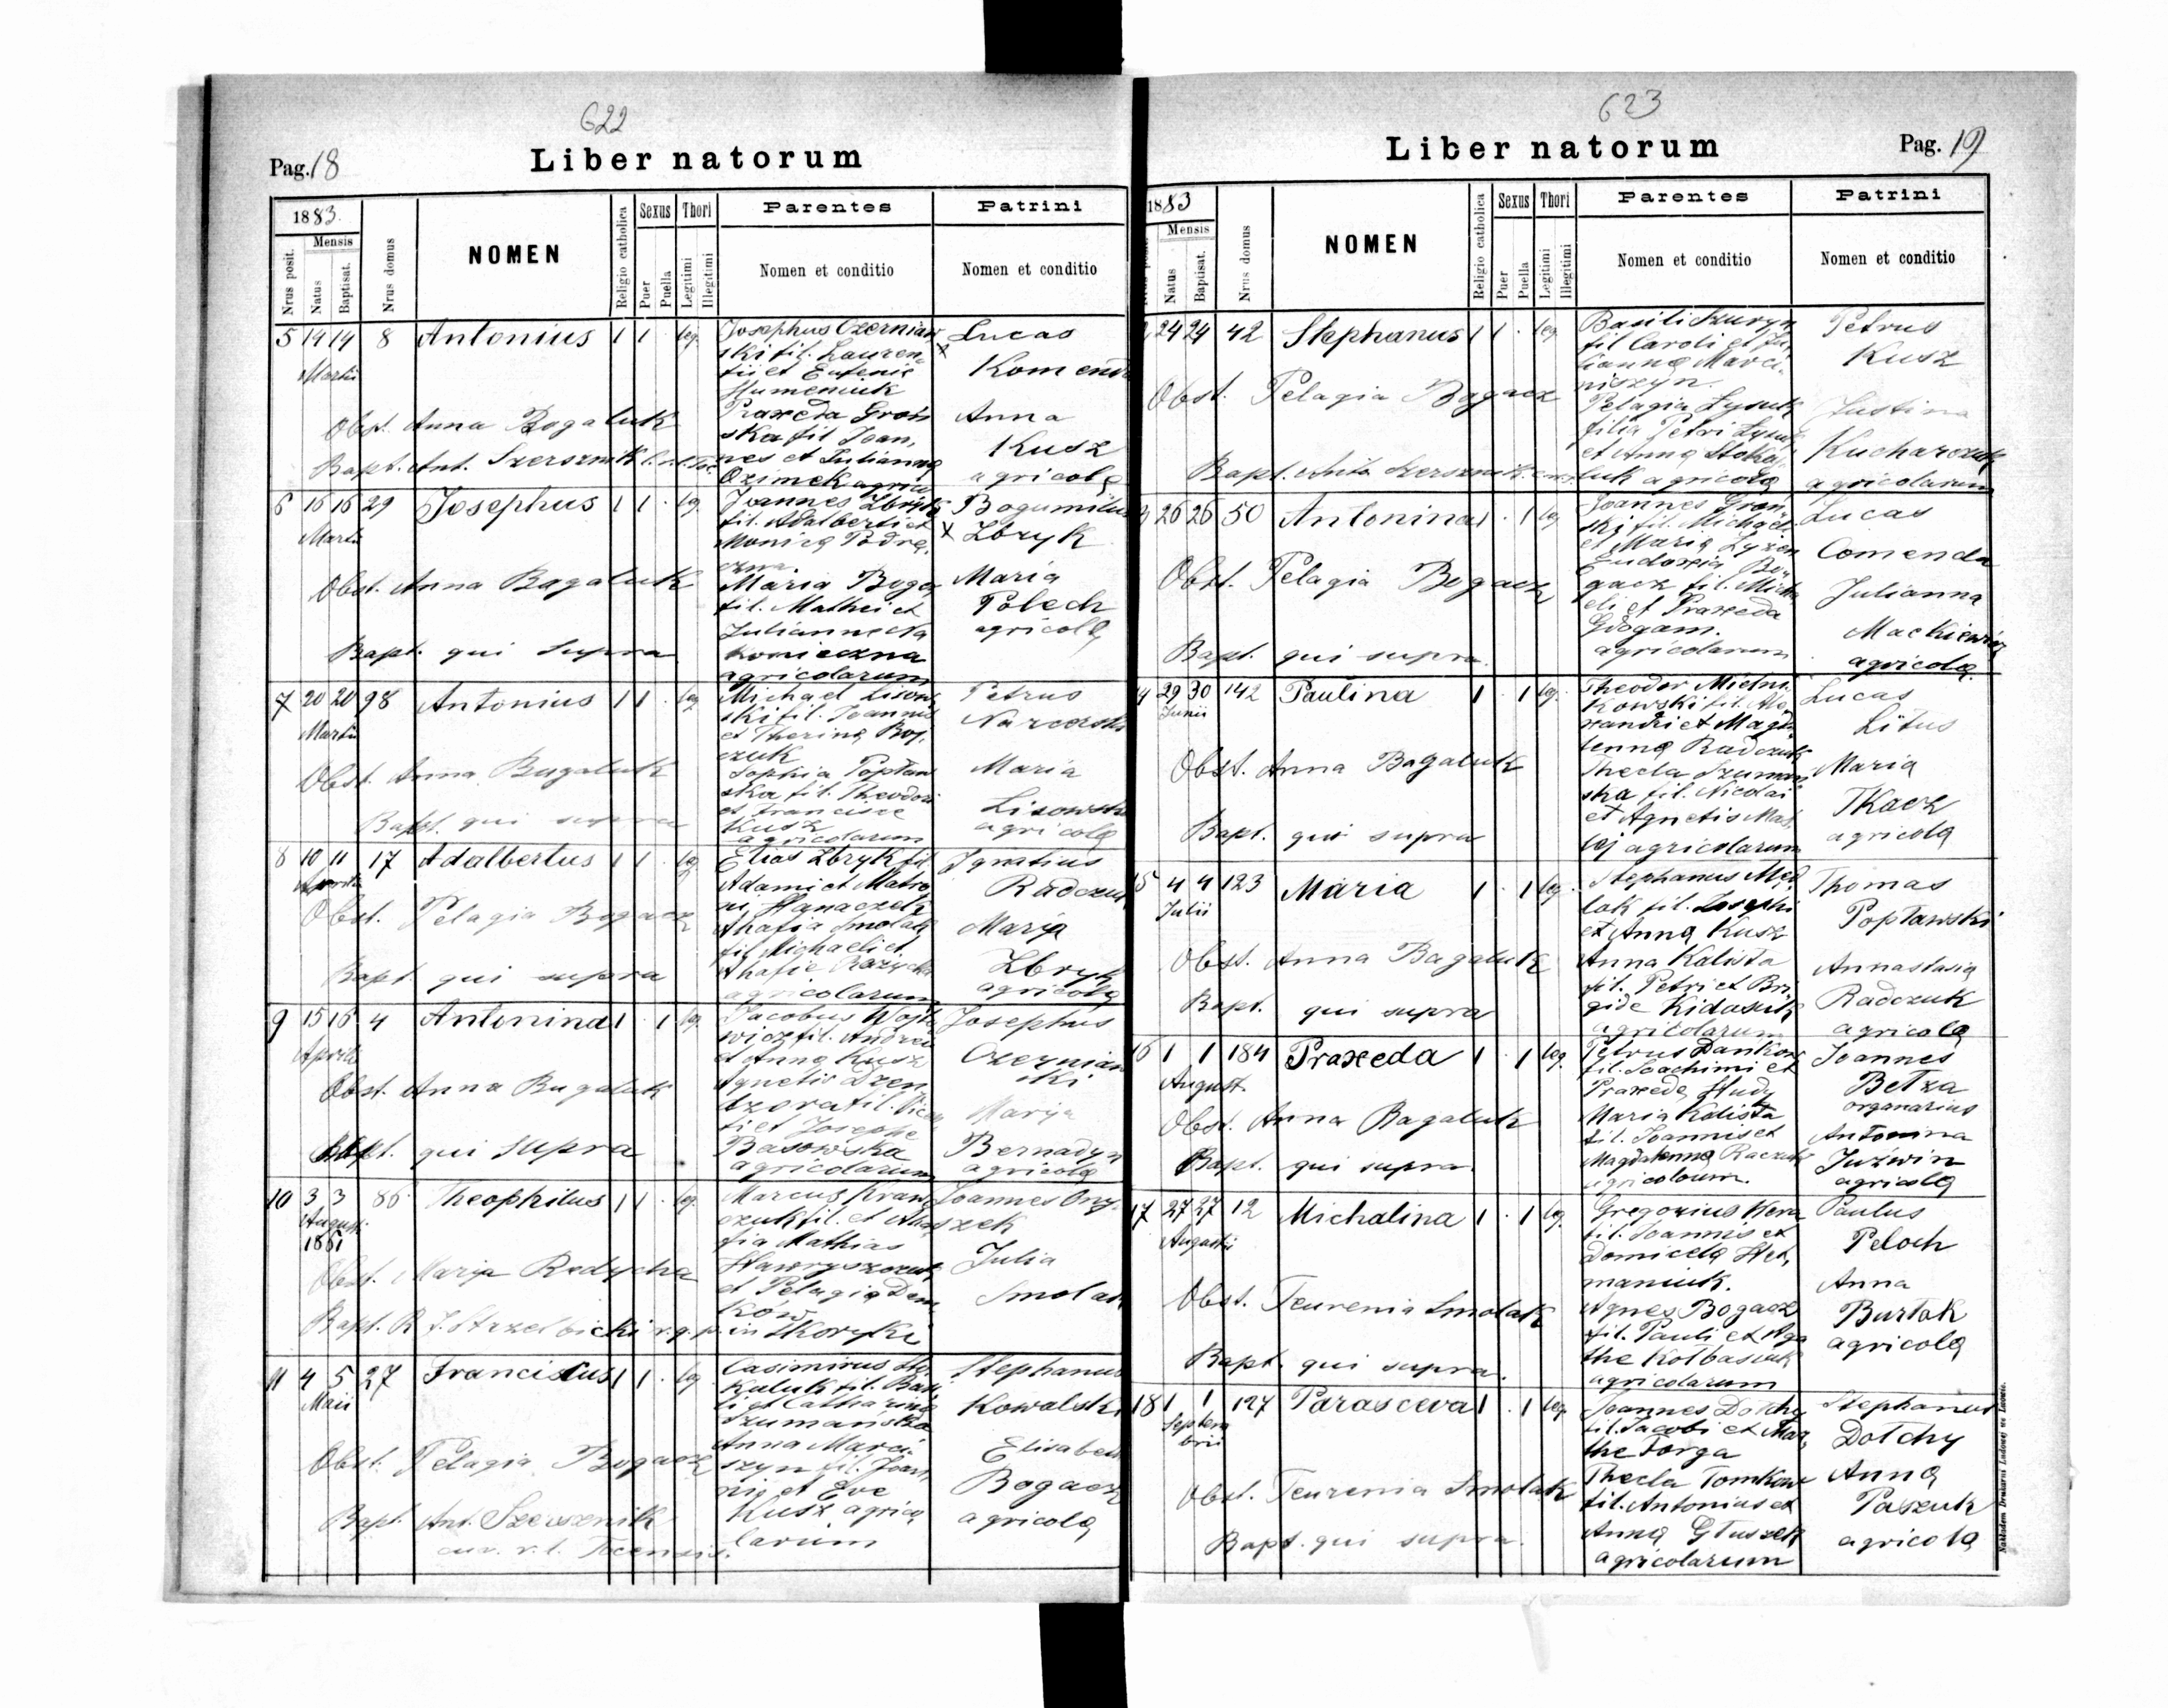 622
Pag. 18
Liber natorum
1883.
Nrus posit.
Mensis
Natus
Baptisat.
Nrus domus
NOMEN
Religio catholica
Sexus
Puer
Puella
Thori
Legitimi
Illegitimi
Parentes
Nomen et conditio
Patrini
Nomen et conditio
5 14 14 8 Antonius 1 1 . leg.
Martii
Obst. Anna Bagaluk
Bapt. Ant. Szersznik
Josephus Czernian
ski fil. Lauren
tii et Eufenie
Humeniuk
Praxeda Groń
ska fil Joan,
nes et Julianna
Ozimek agrico
Lucas
Komend
Anna
Kusz
agricolę
6 16 16 29 Josephus 1 1 . leg.
Martii
Obst. Anna Bagaluk
Bapt. qui supra
Joannes Zbryk
fil. Adalberti et
Monica Podrę,
czna
Maria Boga
fil. Mathei et
Julianne
Konieczna
agricolarum
Bogumilus
Zbryk
Maria
Polech
agricolę
7 20 20 98 Antonius 1 1 . leg
Martii
Obst. Anna Bagaluk
Bapt. qui supra
Michael Lisow
ski fil. Joannis
et Therina Boj,
czuk
Sophia Popław
ska fil. Theodori
et Francisce
Kusz
agricolarum
Petrus
Maria
Lisowska
agricolę
8 10 11 17 Adalbertus 1 1 . leg
Aprilis
Obst. Pelagia Bogacz
Bapt. qui supra
Elias Zbryk fil
Adami et Matro
ni Hanaczek
Ahafia Smolak
fil Michaeli et
Ahafie
agricolarum
Ignatius
Radczuk
Marya
Zbryk
agricolę
9 15 16 4 Antonina 1 . 1 leg.
Aprilis
Obst. Anna Bagaluk
Bapt. qui supra
Jacobus Wojt
wicz fil. Andrei
et Anna Kusz
Agnetis Dzen
dzora fil.
et Josephe
Basowska
agricolarum
Josephus
Czernian
ski
Marya
Bernadyn
agricolę
10 3 3 86 Theophilus 1 1 . leg.
Augusti
1881
Obst. Marya Redycha
Bapt. R J. Strzelbicki r. g. p. in Skoryki
Marcus Kraw
czuk fil. et Aha
fia Mathias
Hawryszczuk
et Pelagia Dem
ków
Joannes Ony
szek
Julia
Smolak
11 4 5 27 Franciscus 1 1 . leg
Maii
Obst. Pelagia Bogacz
Bapt. Ant. Szersznik
cur. r. l. Tocensis.
Casimirus Sto
kaluk fil. Basi
li et Catharina
Szumańska
Anna Marci
szyn fil. Joan
nis et Eve
Kusz agrico
larum
Stephanus
Kowalski
Elisabeth
Bogacz
agricolę
623
Liber natorum
Pag. 19
1883
Mensis
Natus
Baptisat.
Nrus domus
NOMEN
Religio catholica
Sexus
Puer
Puella
Thori
Legitimi
Illegitimi
Parentes
Nomen et conditio
Patrini
Nomen et conditio
24 24 42 Stephanus 1 1 . leg.
Obst. Pelagia Bogacz
Bapt. Szersznik
Basili Szuryn
fil Caroli et Ju
lianna Marci,
niszyn.
Pelagia Łysuk
filia Petri Łysuk
et Anna Stoka
luk agricolę
Petrus
Kusz
Justina
Kucharczuk
agricolarum
26 26 50 Antonina 1 . 1 leg
Obst. Pelagia Bogacz
Bapt. qui supra
Joannes Groń
ski fil. Michael
et Maria Łyzen
Eudoxia Bo
gacz fil. Micha
eli et Praxeda
Gdogam.
agricolarum
Lucas
Comenda
Julianna
Mackiewicz
agricolę
29 30 142 Paulina 1 . 1 leg.
Junii
Obst. Anna Bagaluk
Bapt. qui supra
Theodor Mielni
kowski fil. Ale
xandri et Magda
lenna Radczuk
Thecla Szumań
ska fil. Nicolai
et Agnetis Maś,
lej agricolarum
Lucas
Litus
Maria
Tkacz
agricolę
15 4 4 123 Maria 1 . 1 leg.
Julii
Obst. Anna Bagaluk
Bapt. qui supra
Stephanus Med
lak fil. Josephi
et Anna Kusz
Anna Kalista
fil. Petri et Bri
gide Kidasiuk
agricolarum
Thomas
Popławski
Annastasia
Radczuk
agricolę
16 1 1 184 Praxeda 1 . 1 leg.
August.
Obst. Anna Bagaluk
Bapt. qui supra
Petrus Dankow
fil. Joachimi et
Praxeda Hudy
Maria Kalista
fil. Joannis et
Magdalenna Raczuk
agricoloum.
Joannes
Bełza
organarius
Antonina
Juźwin
agricolę
17 27 27 12 Michalina 1 . 1 leg
Augusti
Obst. Teurenia Smolak
Bapt. qui supra.
Gregorius Kera
fil. Joannis et
Domicela Het,
maniuk.
Agnes Bogacz
fil. Pauli et Aga
the Kołbasiuk
agricolarum
Paulus
Peloch
Anna
Burtak
agricolę
18 1 1 127 Parasceva 1 . 1 leg.
Septem
bris
Obst. Teurenia Smolak
Bapt. qui supra.
Joannes Dotchy
fil. Jacobi et Mar,
the Forga
Thecla Tomkow
fil. Antonius et
Anna Głuszek
agricolarum
Stephanus
Dotchy
Anna
Paszuk
agricola
Nakładem Drukarni Ludowej we Lwowie.